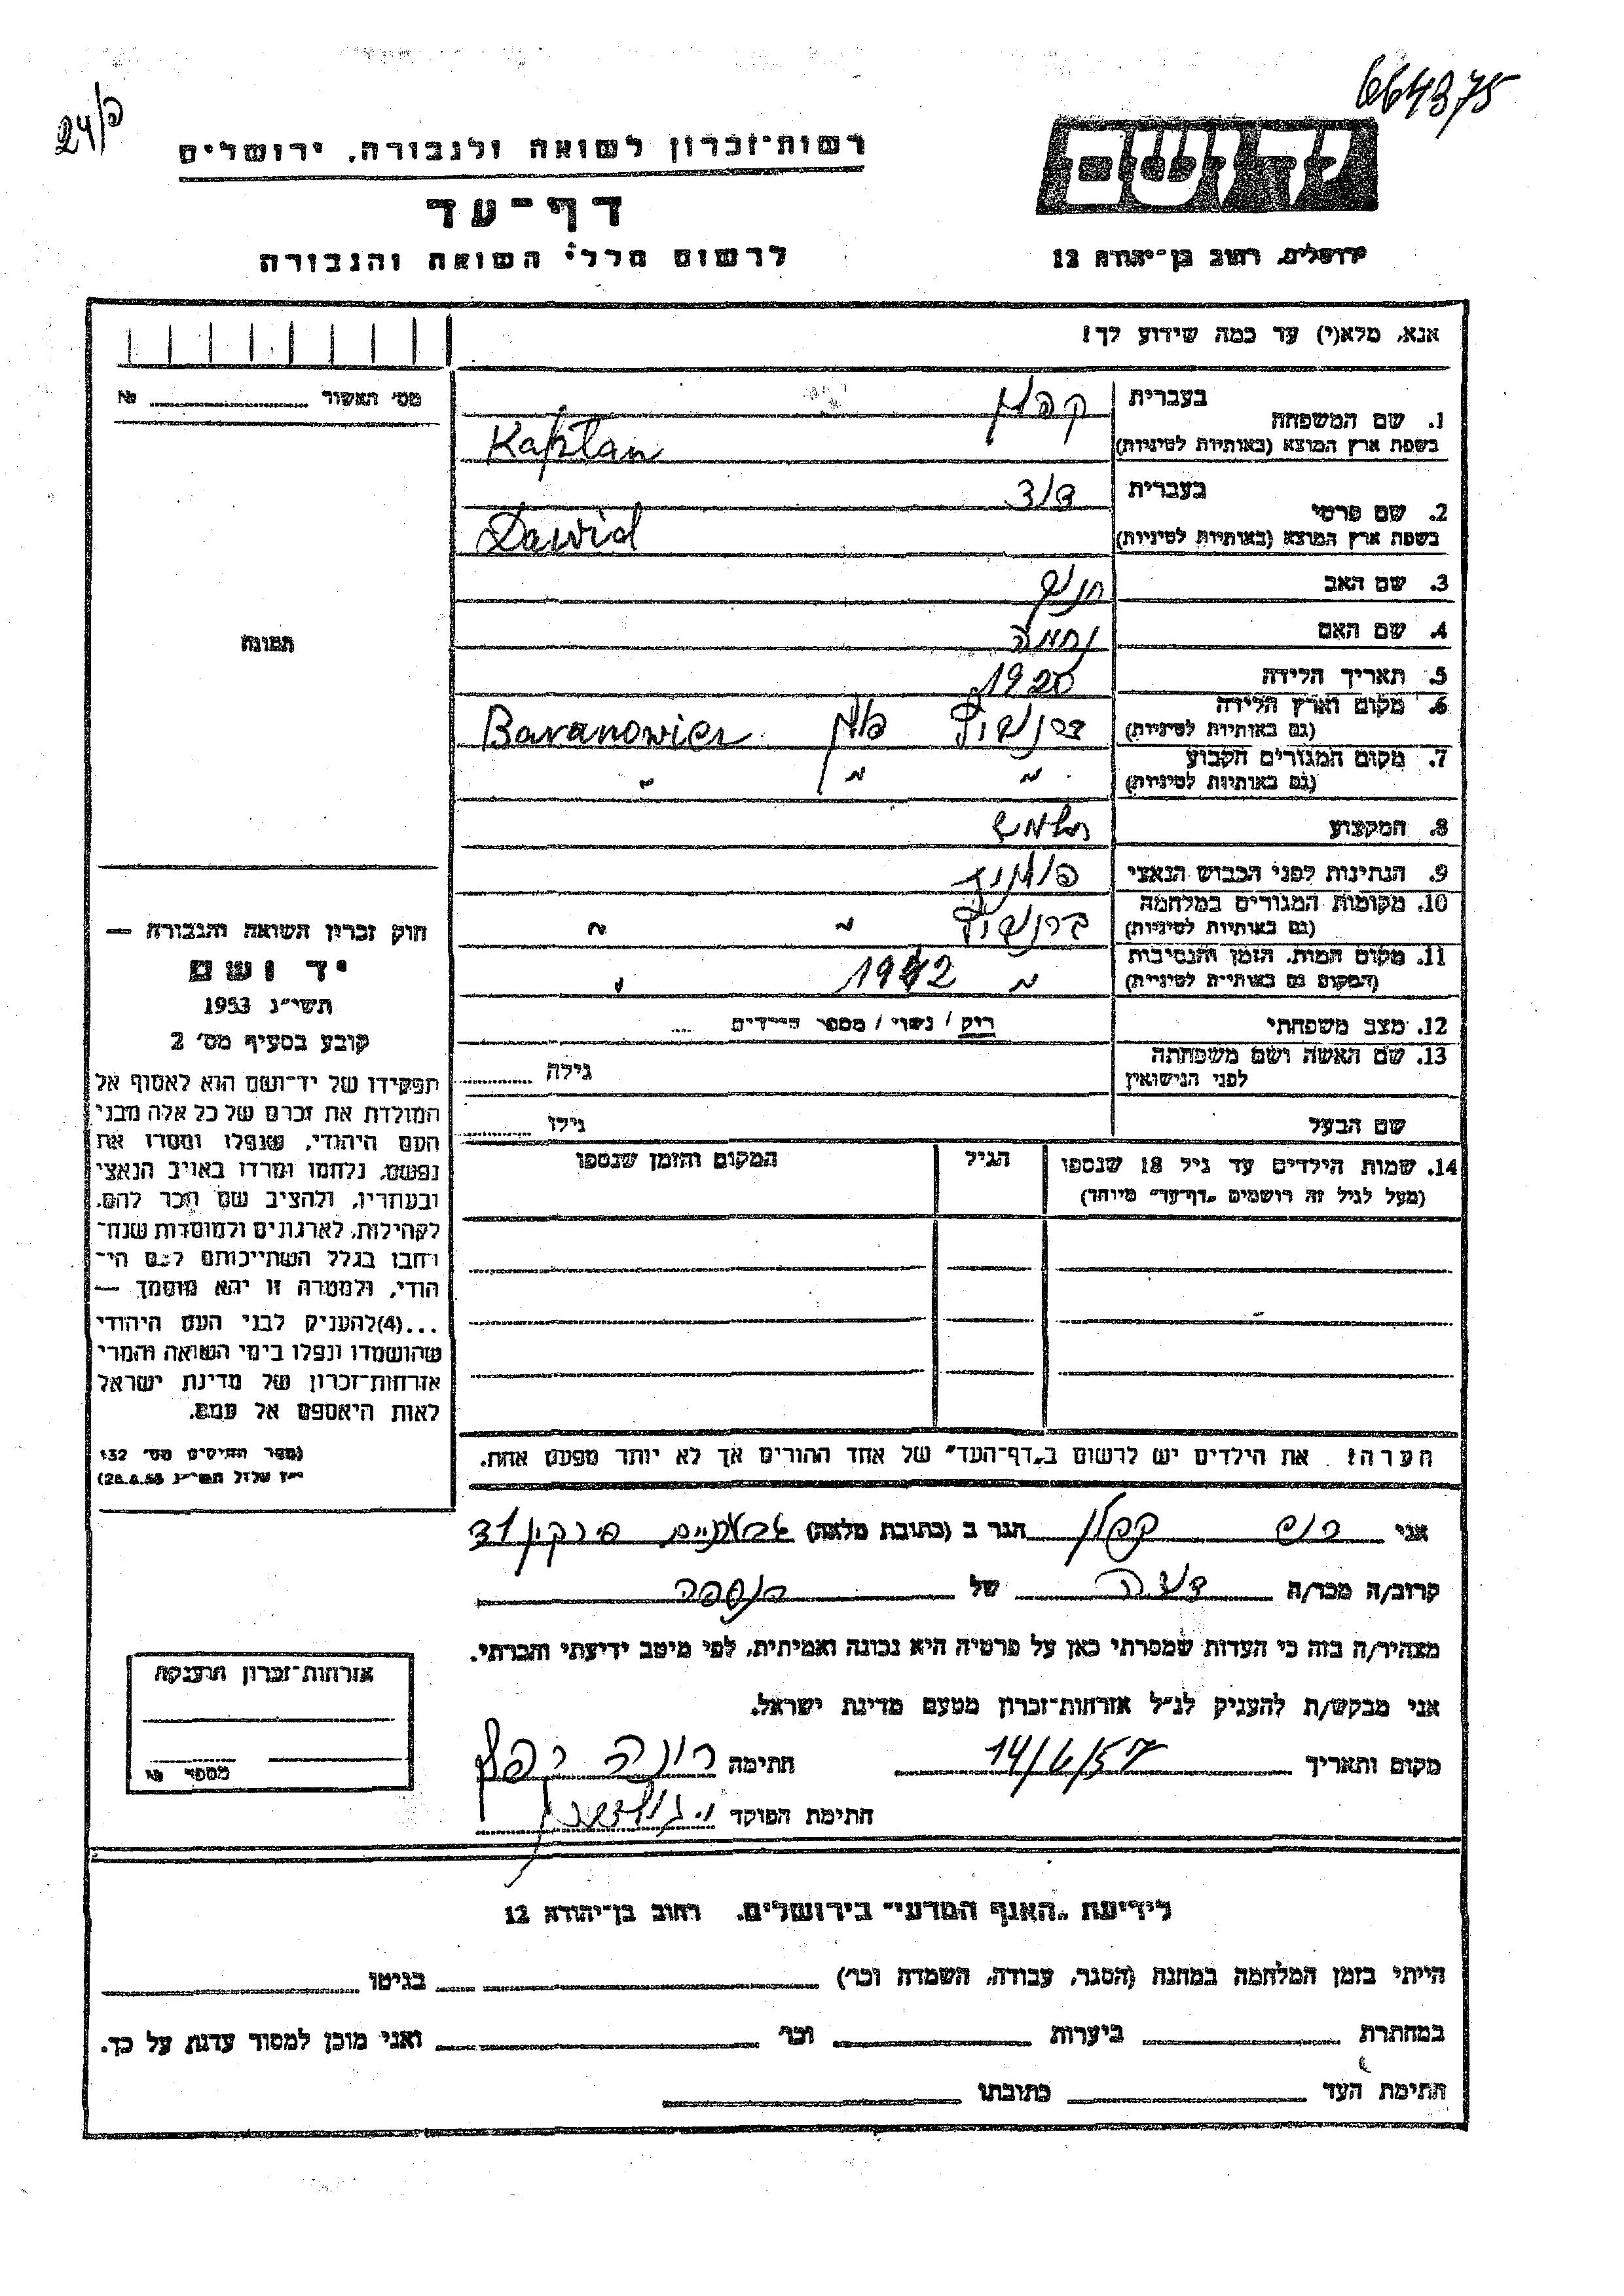 664375
24/כ
יד ושם
ירושלים, רחוב בן־יהודה 12
רשות־זכרון לשואה ולגבורה, ירושלים
דף־עד
לרשום חללי השואה והגבורה
אנא, מלא(י) עד כמה שידוע לך!
1. שם המשפחה
בעברית קפלן
בשפת ארץ המוצא (באותיות לטיניות) Kapłan
2. שם פרטי
בעברית דוד
בשפת ארץ המוצא (באותיות לטיניות) Dawid
3. שם האב
4. שם האם נחמה
5. תאריך הלידה 1920
6. מקום וארץ הלידה
(גם באותיות לטיניות) ברנוביץ פולין Baranowicz
7. מקום המגורים הקבוע
(גם באותיות לטיניות) " " "
8. המקצוע
9. הנתינות לפני הכבוש הנאצי פולנית
10. מקומות המגורים במלחמה
(גם באותיות לטיניות) ברנוביץ " "
11. מקום המות, הזמן והנסיבות
(המקום גם באותיות לטיניות) " 1942 "
12. מצב משפחתי רוק / נשוי / מספר הילדים ....
13. שם האשה ושם משפחתה
לפני הנישואין גילה
שם הבעל גילו
14. שמות הילדים עד גיל 18 שנספו הגיל המקום והזמן שנספו
(מעל לגיל זה רושמים "דף־עד" מיוחד)
הערה! את הילדים יש לרשום ב"דף־העד" של אחד ההורים אך לא יותר מפעם אחת.
מס' האשור №
תמונה
חוק זכרון השואה והגבורה —
יד ושם
תשי"ג 1953
קובע בסעיף מס' 2
תפקידו של יד־ושם הוא לאסוף אל
המולדת את זכרם של כל אלה מבני
העם היהודי, שנפלו ומסרו את
נפשם, נלחמו ומרדו באויב הנאצי
ובעוזריו, ולהציב שם וזכר להם,
לקהילות, לארגונים ולמוסדות שנח־
רחבו בגלל השתייכותם לעם הי־
הודי, ולמטרה זו יהא מוסמך —
...(4)להעניק לבני העם היהודי
שהושמדו ונפלו בימי השואה והמרי
אזרחות־זכרון של מדינת ישראל
לאות היאספם אל עמם.
(ספר החוקים מס' 132
י"ז אלול תשי"ג 28.8.53)
אני קפלן הגר ב (כתובת מלאה) גבעתיים סירקין 31
קרוב/ה מכר/ה דודה של הנספה
מצהיר/ה בזה כי העדות שמסרתי כאן על פרטיה היא נכונה ואמיתית, לפי מיטב ידיעתי והכרתי.
אני מבקש/ת להעניק לנ"ל אזרחות־זכרון מטעם מדינת ישראל.
מקום ותאריך 14/6/57 חתימה
חתימת הפוקד
אזרחות־זכרון הוענקה
מספר
לידיעת "האגף המדעי" בירושלים, רחוב בן־יהודה 12
הייתי בזמן המלחמה במחנה (הסגר, עבודה, השמדה וכו') בגיטו
במחתרת ביערות וכו' ואני מוכן למסור עדות על כך.
חתימת העד כתובתו